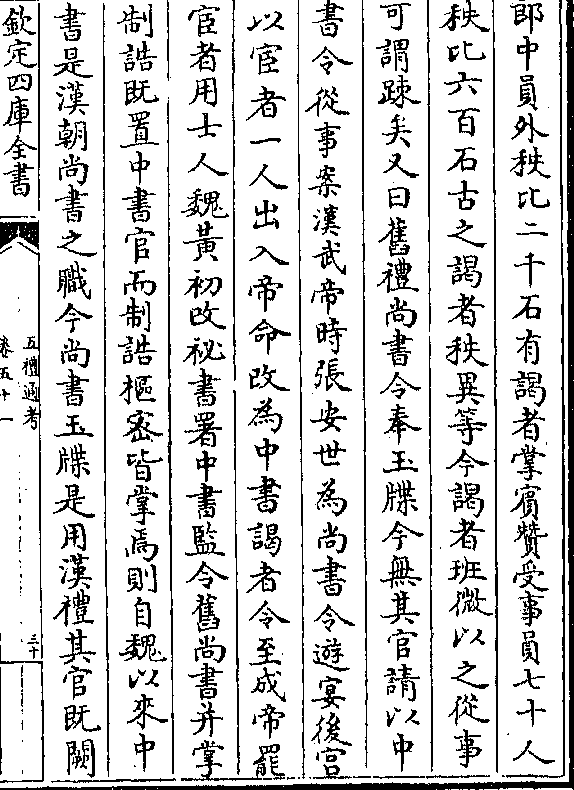 郎中員外秩比二千石有謁者掌賓贊受事員七十人
秩比六百石古之謁者秩異等今謁者班微以之從事
可謂踈矣又曰舊禮尚書令奉玉牒今無其官請以中
書令從事案漢武帝時張安世為尚書令遊宴後宮
以宦者一人出入帝命改為中書謁者令至成帝罷
宦者用士人魏黃初改祕書署中書監令舊尚書并掌
制誥既置中書官而制誥樞密皆掌焉則自魏以來中
書是漢朝尚書之職今尚書玉牒是用漢禮其官既闕
欽定四庫全書
五禮通考
卷五十一
三十